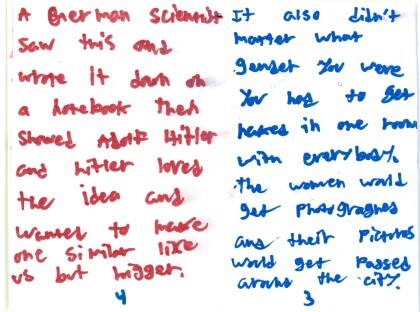 A German scientist
saw this and
wrote it down on
a notebook then
showed Adolf Hitler
and hitler loved
the idea and
wanted to make
one similar like
us but bigger.
4
It also didn't
matter what
gender You were
You had to get
naked in one room
with everybody.
the women would
get photographed
and their Pictures
would get Passed
around the city.
3